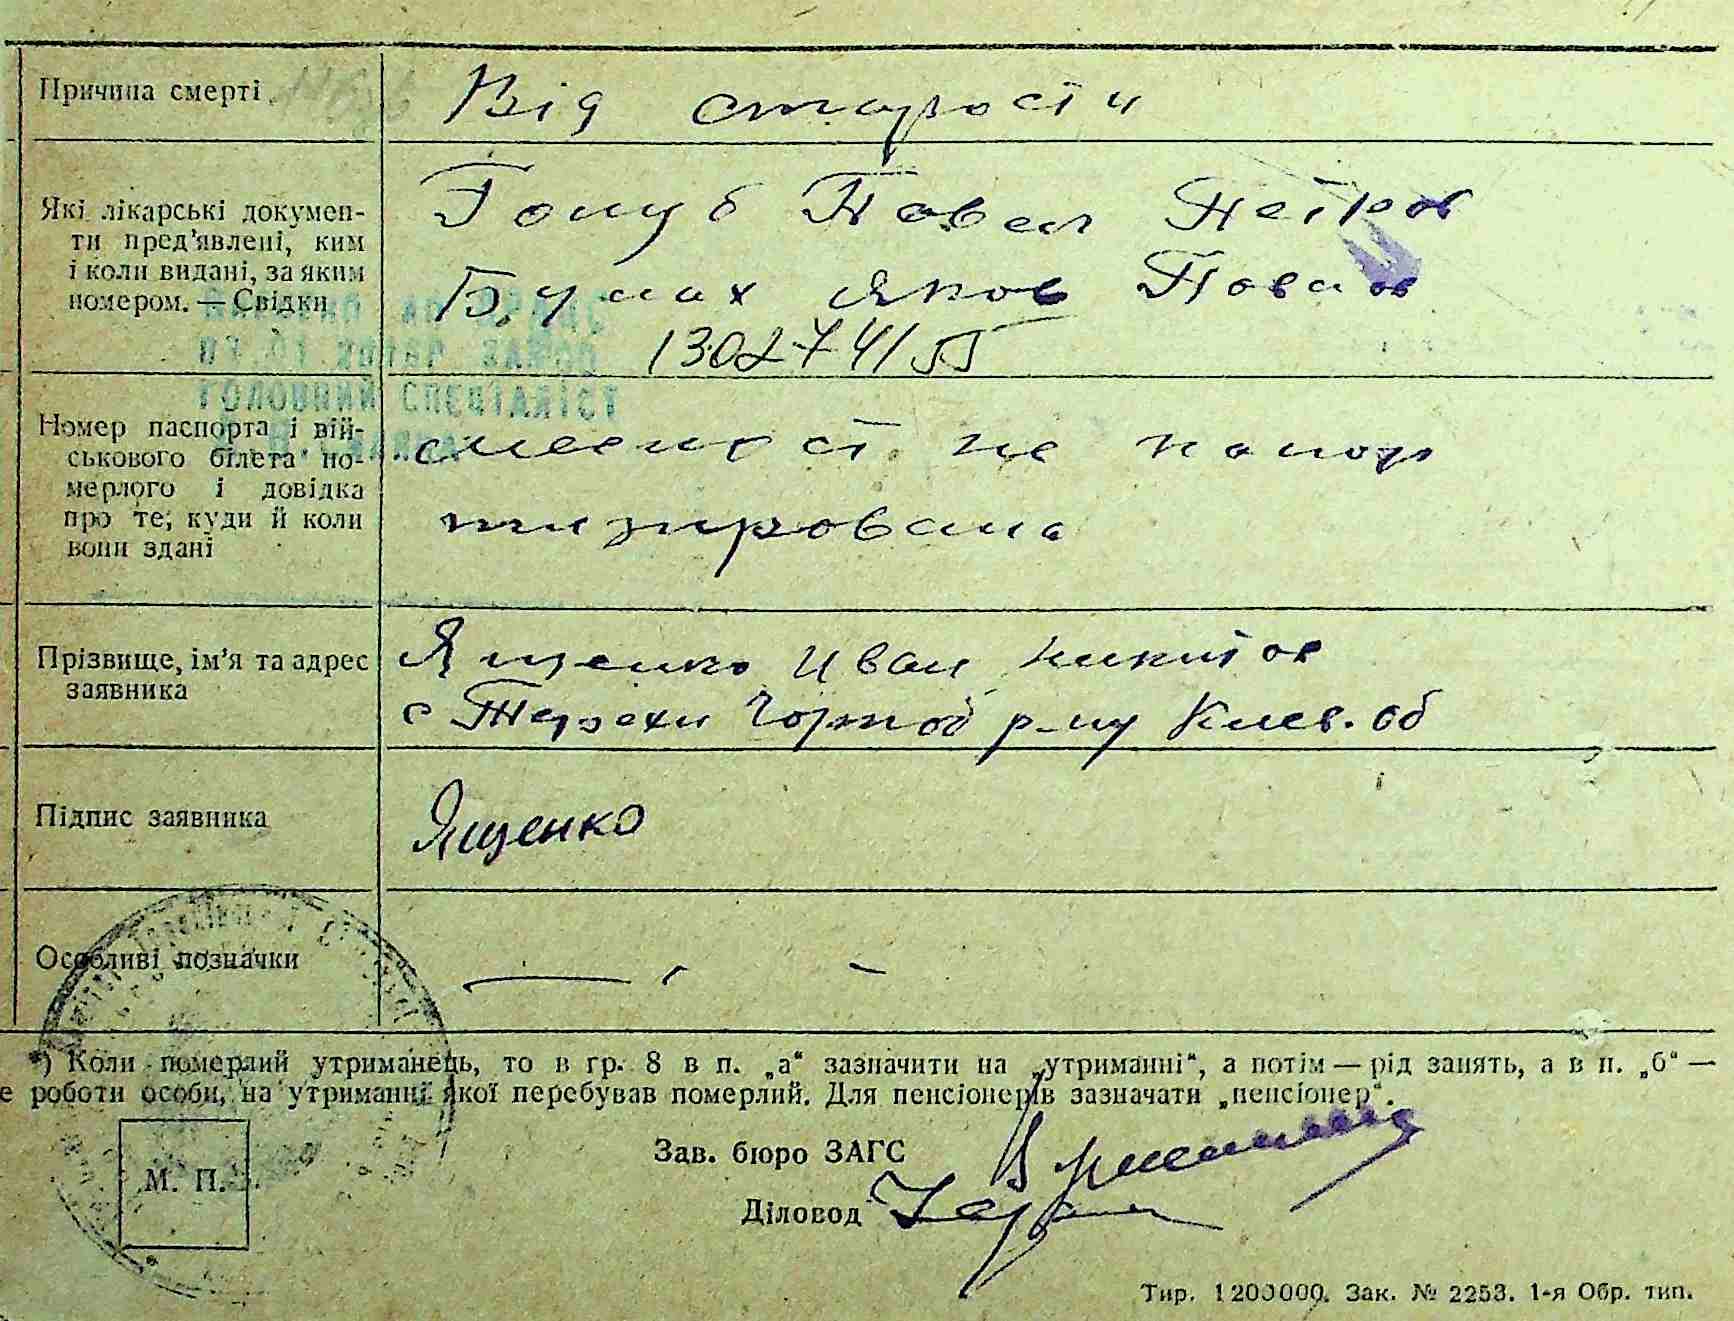 Причина смерті
Від старости
Які лікарські докумен-
ти пред'явлені, ким
і коли видані, за яким
номером. — Свідки
Голуб Павел Петров
Булах Яков Павлов
130274/55
ГОЛОВНИЙ СПЕЦІАЛІСТ
Номер паспорта і вій-
ськового білета по-
мерлого і довідка
про те, куди й коли
вони здані
не паспор
тизирована
Прізвище, ім'я та адрес
заявника
Ященко Иван Никитов
с Терехи р-ну Киев. об
Підпис заявника
Ященко
Особливі позначки
*) Коли померлий утриманець, то в гр. 8 в п. „а“ зазначити на „утриманні“, а потім — рід занять, а в п. „б“ —
е роботи особи, на утриманні якої перебував померлий. Для пенсіонерів зазначати „пенсіонер“.
Зав. бюро ЗАГС
М. П.
Діловод
Тир. 1200000. Зак. № 2253. 1-я Обр. тип.